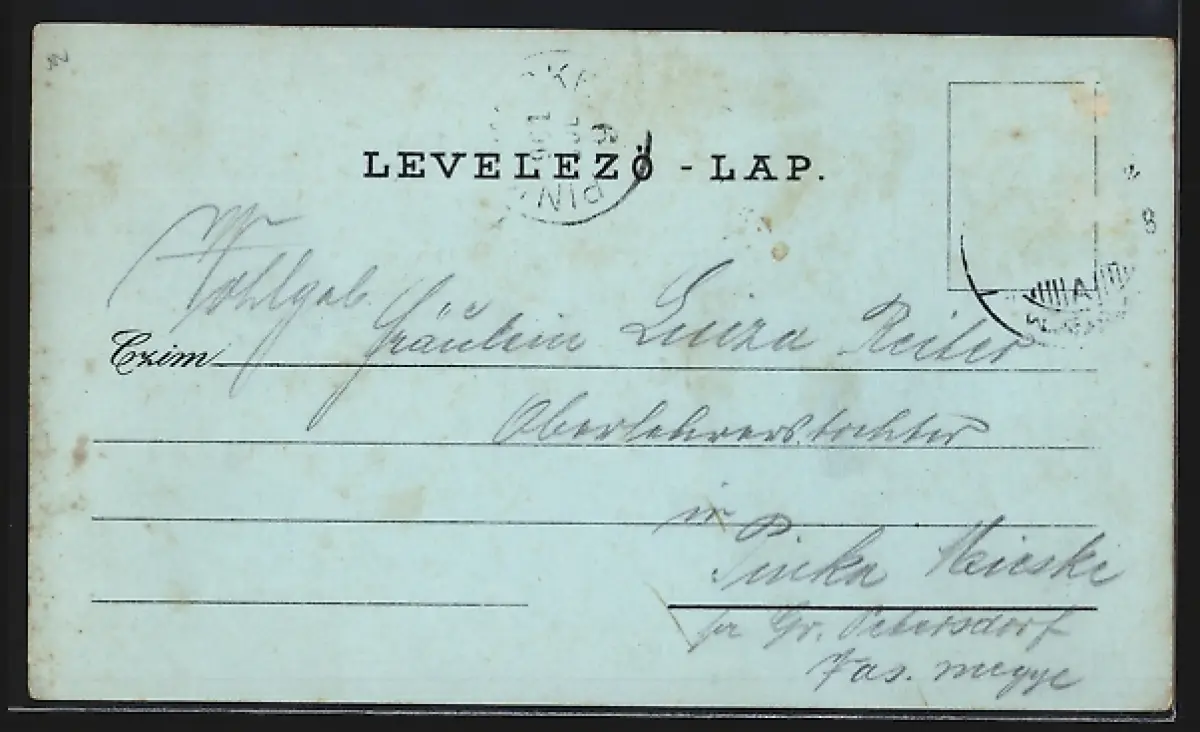 LEVELEZŐ - LAP.
Wohlgeb.
Czim Fräulein Luiza Reiter
Oberlehrerstochter
in
Pinka
pr Gr. Petersdorf
Vas. megye